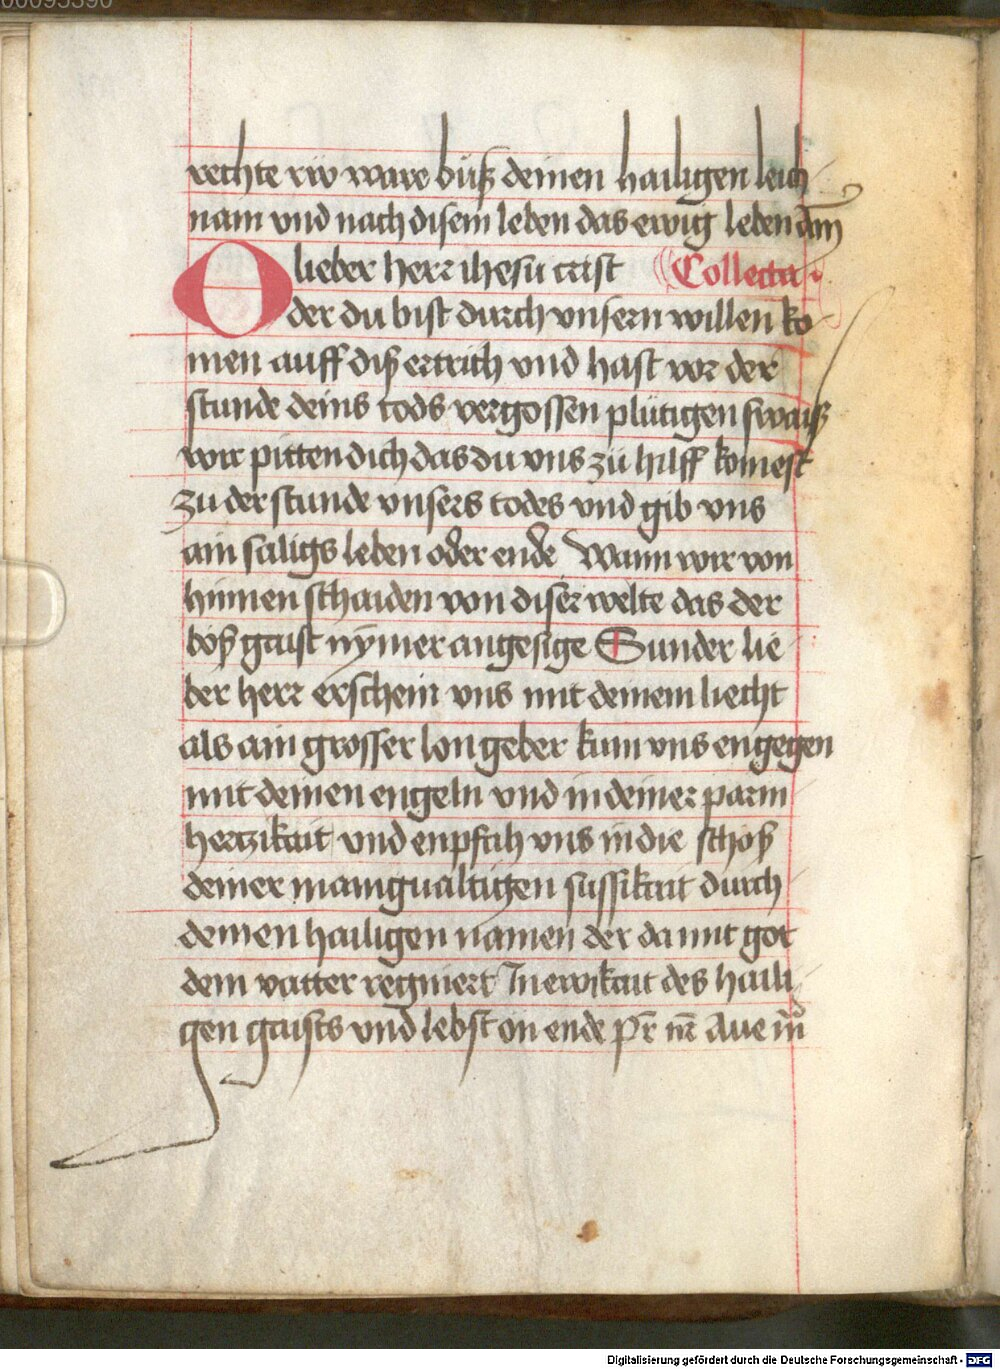 00095390
rechte riw ware búsz deinen hailigen leich
nam vnd nach disem leben das ewig leben am̄
O lieber herr ihesu crist Collecta.
der du bist durch vnsern willen ko
men auff disz ertrich vnd hast vor der
stunde deins tods vergossen plútigen swaisz
wir pitten dich das du vns zú hilff komest
zu der stunde vnsers todes vnd gib vns
ain saligs leben oder ende Wann wir von
hinnen schaiden von diser welte das der
bósz gaist nÿmer angesige Sunder lie
ber herr erschein vns mit deinem liecht
als ain grosser lon geber kum vns engegen
mit deinen engeln vnd in deiner parm
hertzikait vnd enpfah vns in die schosz
deiner manigualtigen sússikait durch
deinen hailigen namen der da mit got
dem vatter regniert In ewikait des haili
gen gaists vnd lebst on ende Pr̄ nr̄ Aue mͣ
Digitalisierung gefördert durch die Deutsche Forschungsgemeinschaft - DFG